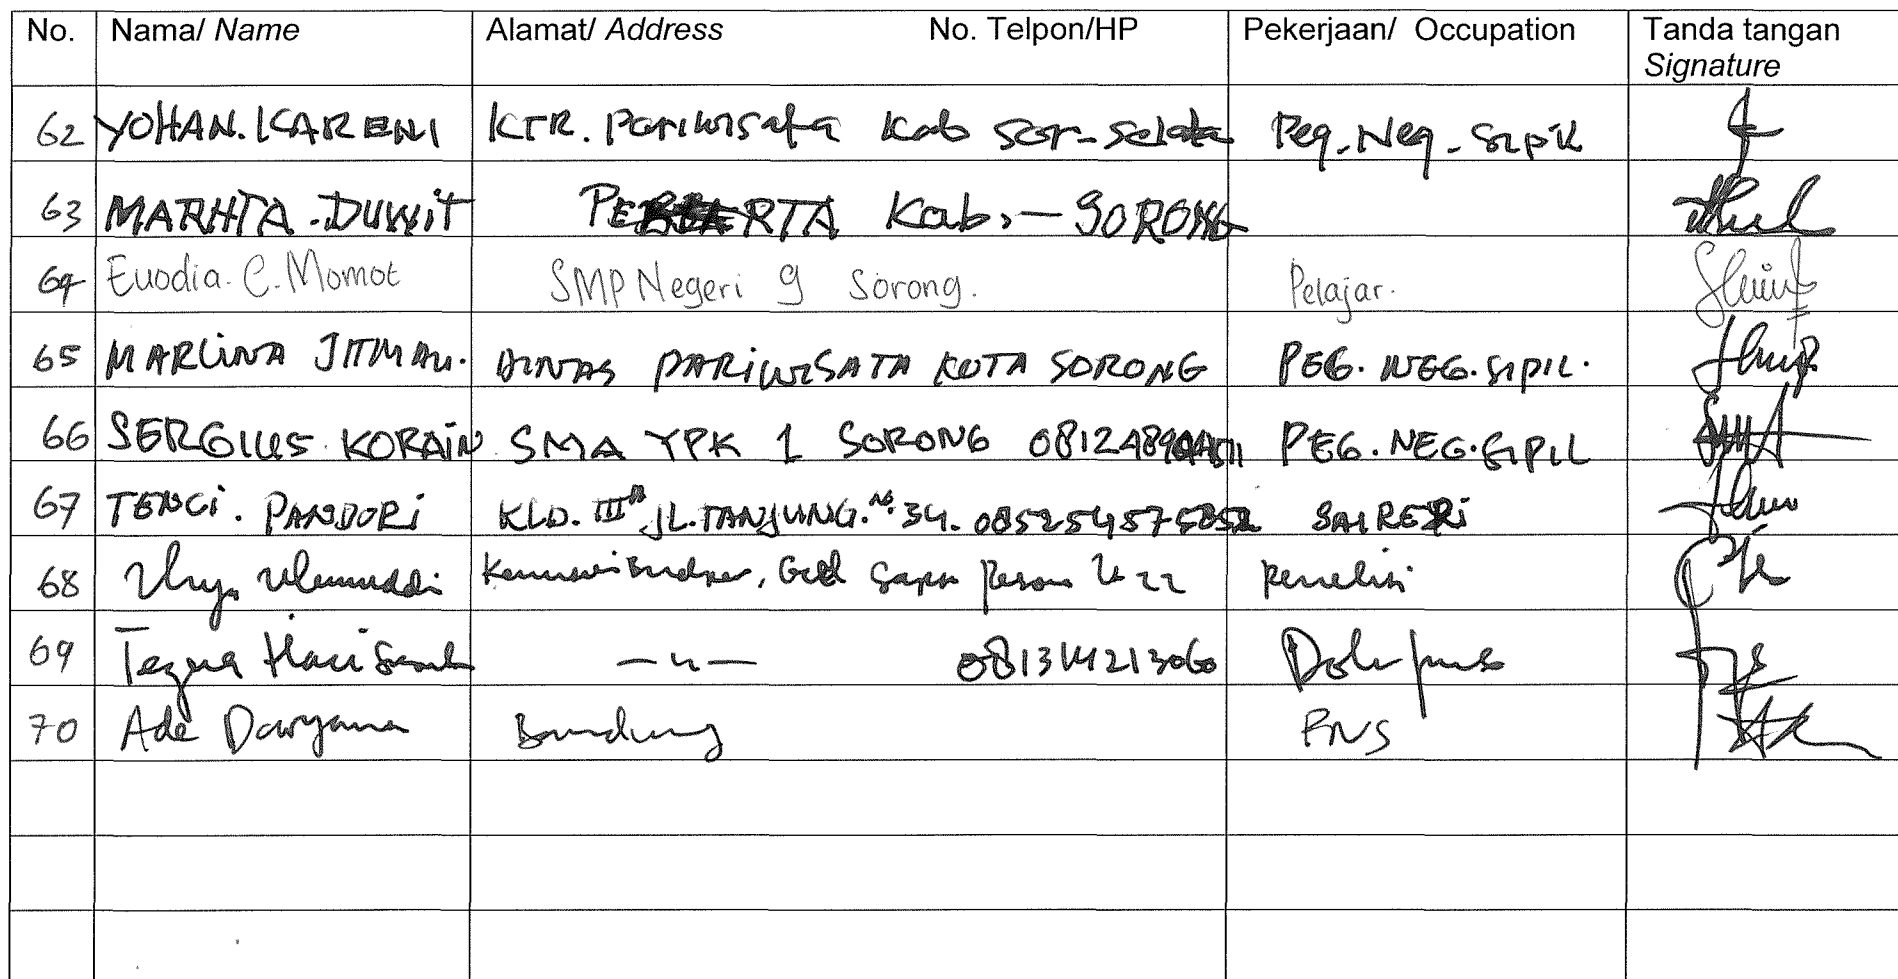 No. Nama/ Name Alamat/ Address No. Telpon/HP Pekerjaan/ Occupation Tanda tangan
Signature
62 YOHAN. KARENI KTR. Pariwisata Kab Sor-Selata Peg. Neg. Sipil
63 MARHTA. DUWIT Kab. - SORONG
64 Euodia. C. Momot SMP Negeri 9 Sorong. Pelajar.
65 MARLINA JITMAU. DINAS PARIWISATA KOTA SORONG PEG. NEG. SIPIL.
66 SERGIUS KORAIN SMA YPK 1 SORONG PEG. NEG. SIPIL
67 TENCI. PANDORI KLD. III JL. TANJUNG. No. 34. SAIRERI
68 Peneliti
69 Hari — 〃 — 081314213060
70 Ade Daryana Bandung PNS